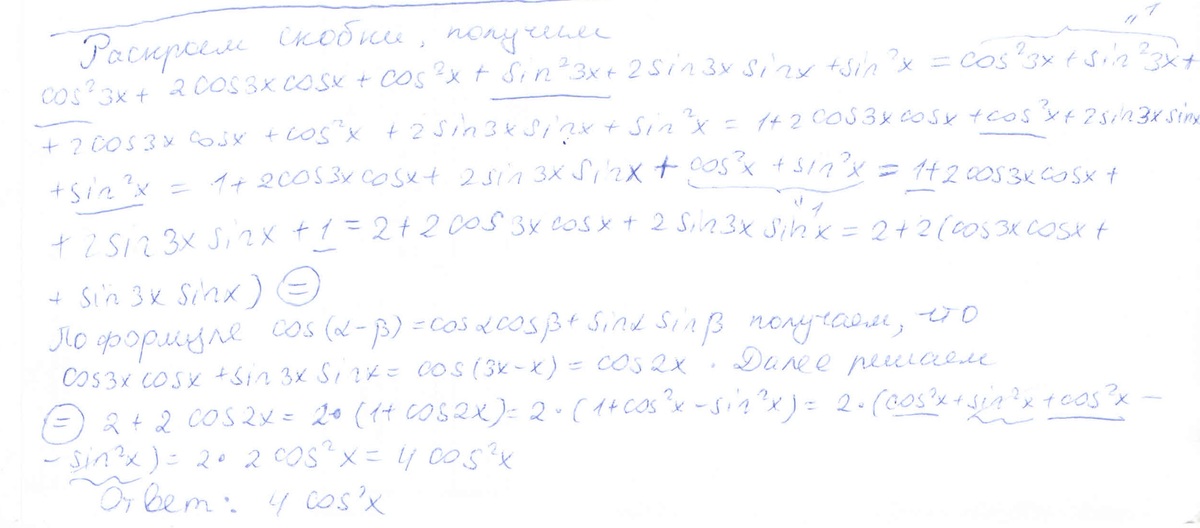 Раскроем скобки, получим
cos²3x + 2cos3x cosx + cos²x + sin²3x + 2sin3x sinx + sin²x = cos²3x + sin²3x + "1
+ 2cos3x cosx + cos²x + 2sin3x sinx + sin²x = 1 + 2cos3x cosx + cos²x + 2sin3x sinx
+ sin²x = 1 + 2cos3x cosx + 2sin3x sinx + cos²x + sin²x = 1 + 2cos3x cosx +
"1
+ 2sin3x sinx + 1 = 2 + 2cos3x cosx + 2sin3x sinx = 2 + 2(cos3x cosx +
+ sin3x sinx) =
По формуле cos(α-β) = cosαcosβ + sinα sinβ получаем, что
cos3x cosx + sin3x sinx = cos(3x-x) = cos2x. Далее решаем
= 2 + 2cos2x = 2•(1+cos2x) = 2•(1+cos²x-sin²x) = 2•(cos²x+sin²x+cos²x-
-sin²x) = 2•2cos²x = 4cos²x
Ответ: 4cos²x